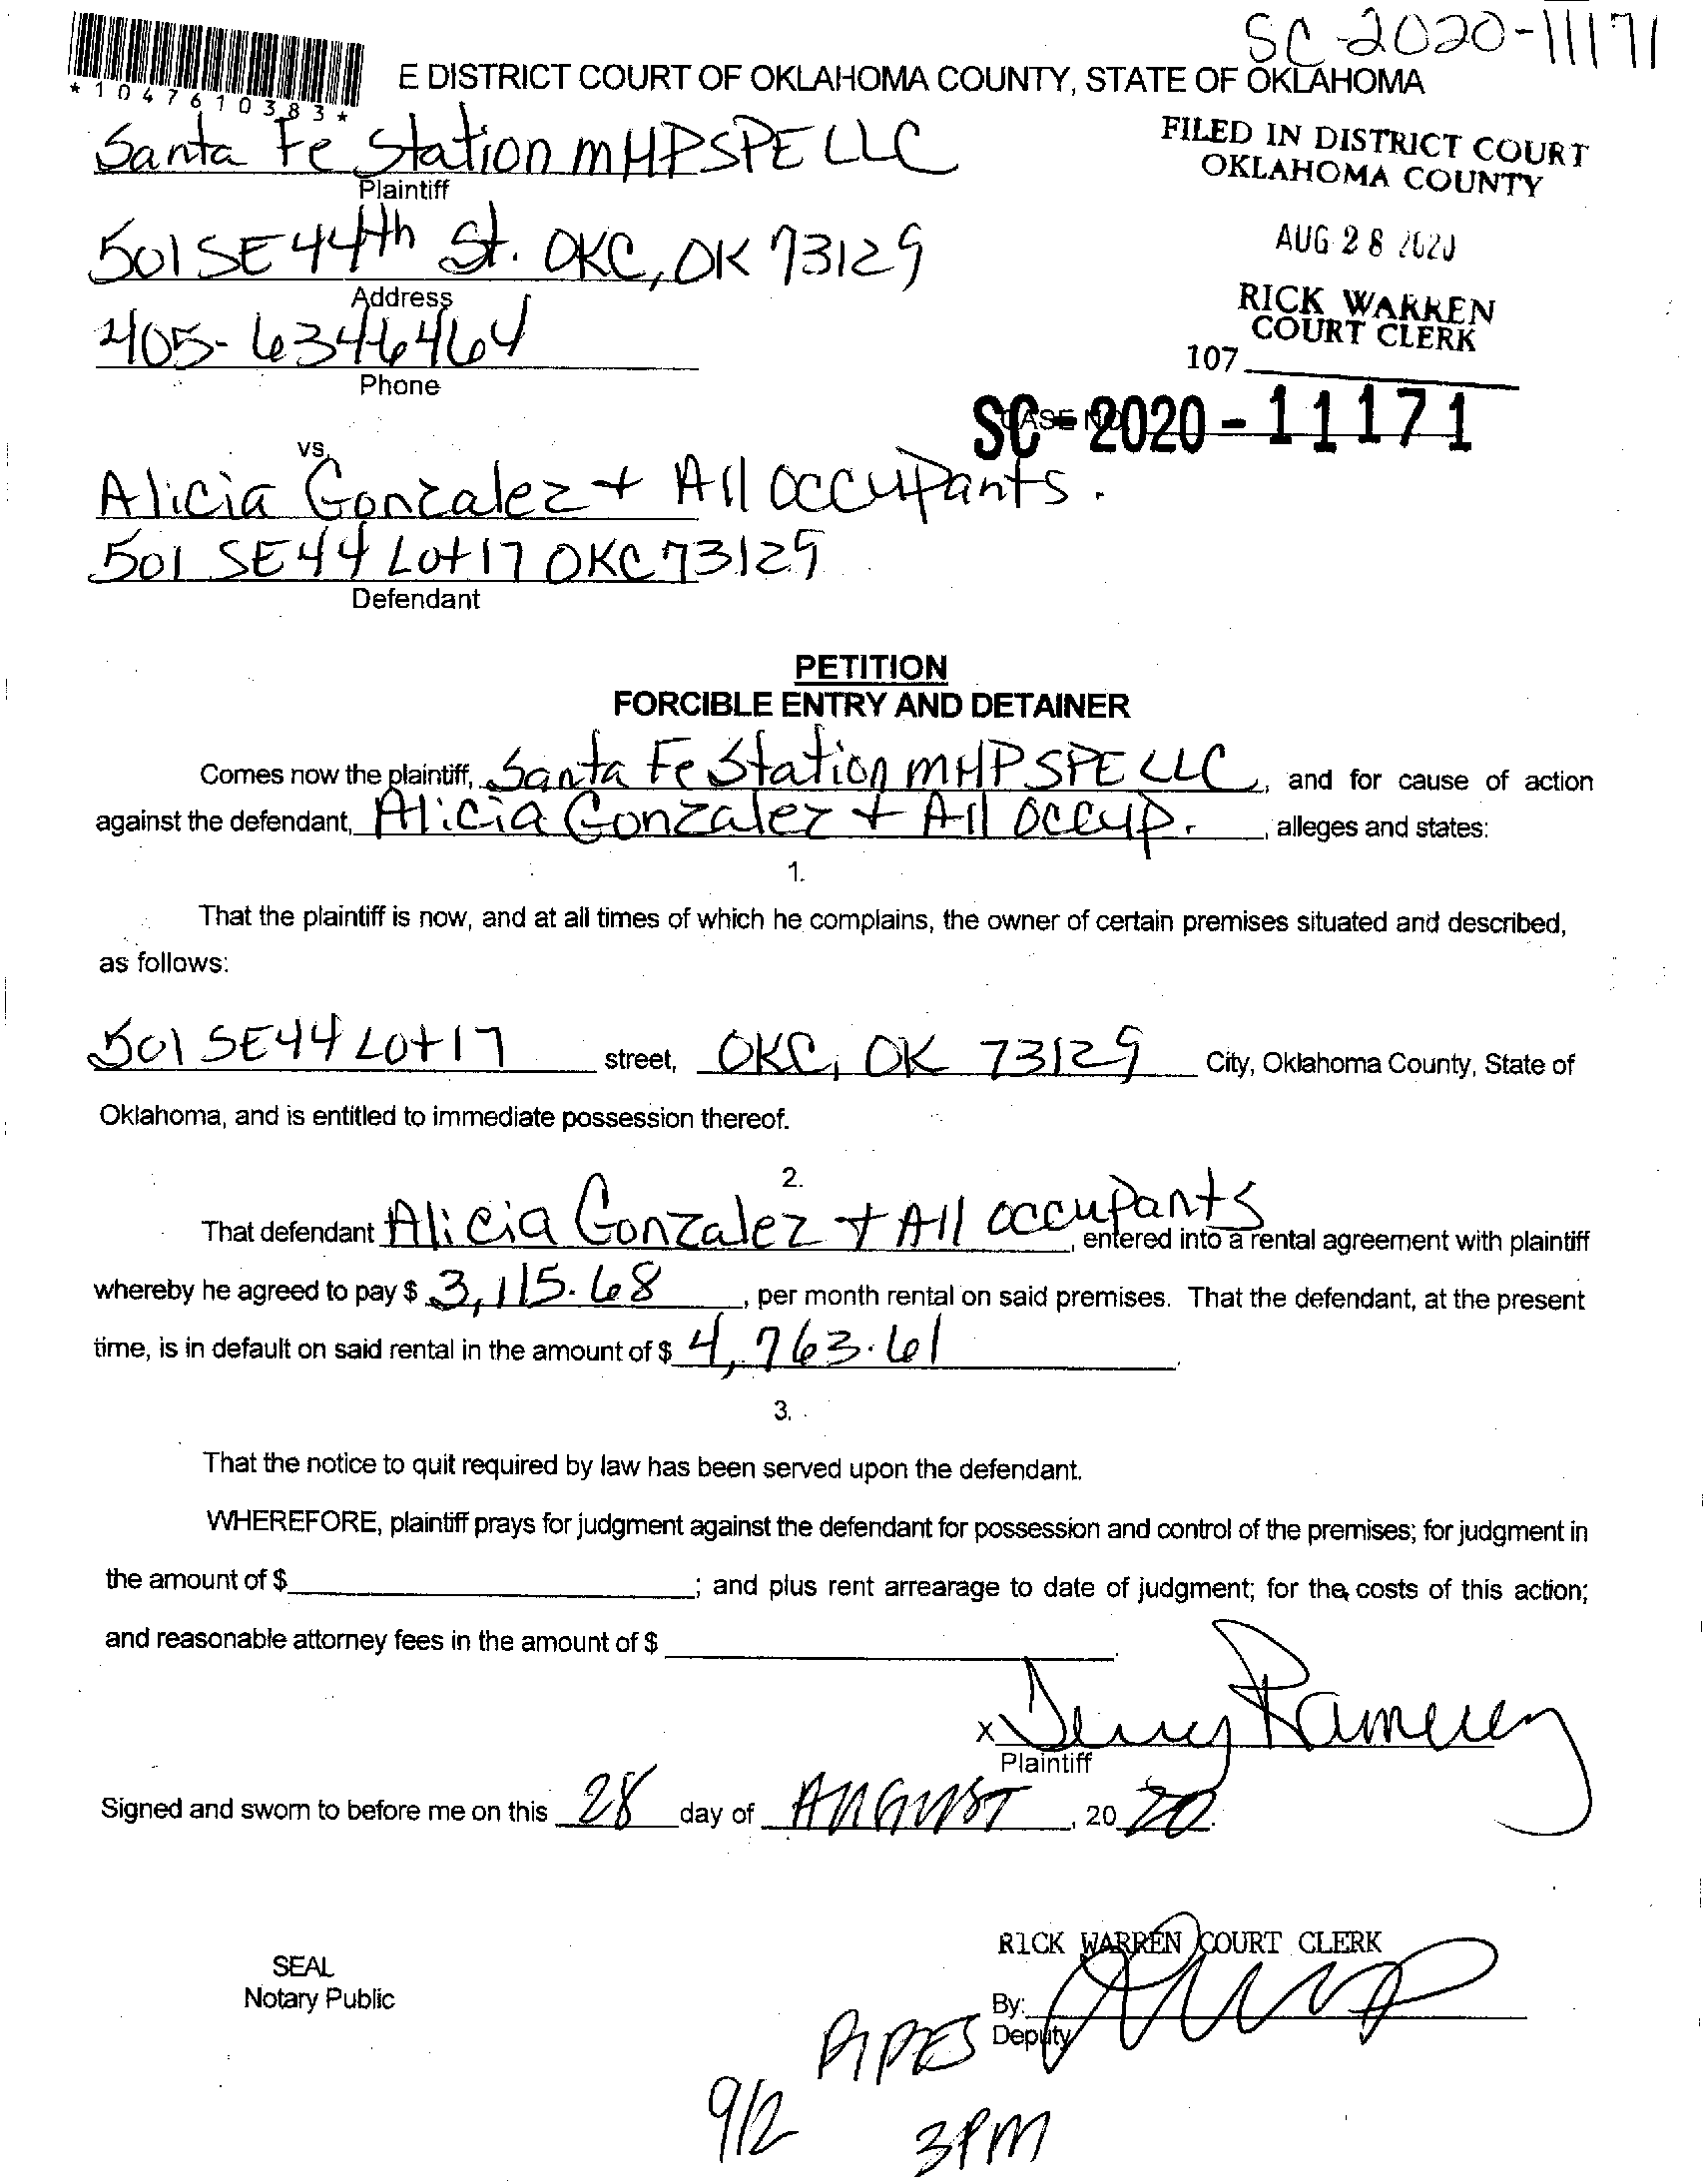 SC-2020-11171
*1047610383*
E DISTRICT COURT OF OKLAHOMA COUNTY, STATE OF OKLAHOMA
Santa Fe Station MHPSPE LLC
Plaintiff
FILED IN DISTRICT COURT
OKLAHOMA COUNTY
501 SE 44th St. OKC, OK 73129
Address
AUG 28 2020
405-6346464
Phone
RICK WARREN
COURT CLERK
107
CASE NO.
SC-2020-11171
vs.
Alicia Gonzalez + All Occupants.
501 SE 44 Lot 17 OKC 73129
Defendant
PETITION
FORCIBLE ENTRY AND DETAINER
Comes now the plaintiff, Santa Fe Station MHP SPE LLC, and for cause of action
against the defendant, Alicia Gonzalez + All Occup., alleges and states:
1.
That the plaintiff is now, and at all times of which he complains, the owner of certain premises situated and described,
as follows:
501 SE 44 Lot 17 street, OKC, OK 73129 City, Oklahoma County, State of
Oklahoma, and is entitled to immediate possession thereof.
2.
That defendant Alicia Gonzalez + All occupants, entered into a rental agreement with plaintiff
whereby he agreed to pay $ 3,115.68, per month rental on said premises. That the defendant, at the present
time, is in default on said rental in the amount of $ 4,763.61.
3.
That the notice to quit required by law has been served upon the defendant.
WHEREFORE, plaintiff prays for judgment against the defendant for possession and control of the premises; for judgment in
the amount of $ ; and plus rent arrearage to date of judgment; for the costs of this action;
and reasonable attorney fees in the amount of $ .
X
Plaintiff
Signed and sworn to before me on this 28 day of AUGUST, 20 20.
RICK WARREN COURT CLERK
SEAL
Notary Public
By:
Deputy
PIPES
9/2
3PM